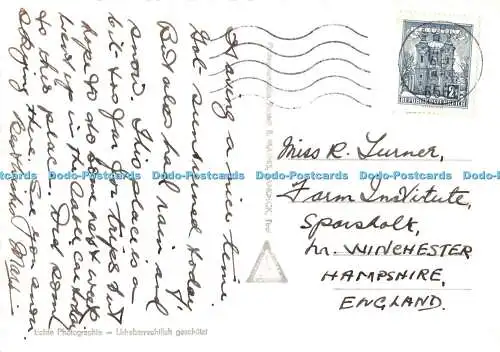 Having a nice time.
Got sunburned today
But also had rain and
snow. This place is a
bit too far for trips but
hope to do some next week
Went up in the Cable car today
to this place. Did some
skiing there. See you soon.
Best wishes
Miss R. Turner,
Farm Institute,
Sparsholt,
Nr. WINCHESTER
HAMPSHIRE,
ENGLAND.
2
REPUBLIK ÖSTERREICH
INNSBRUCK
Echte Photographie — Urheberrechtlich geschützt
Dodo-Postcards Dodo-Postcards Dodo-Postcards Dodo-Postcards Dodo-Postcards